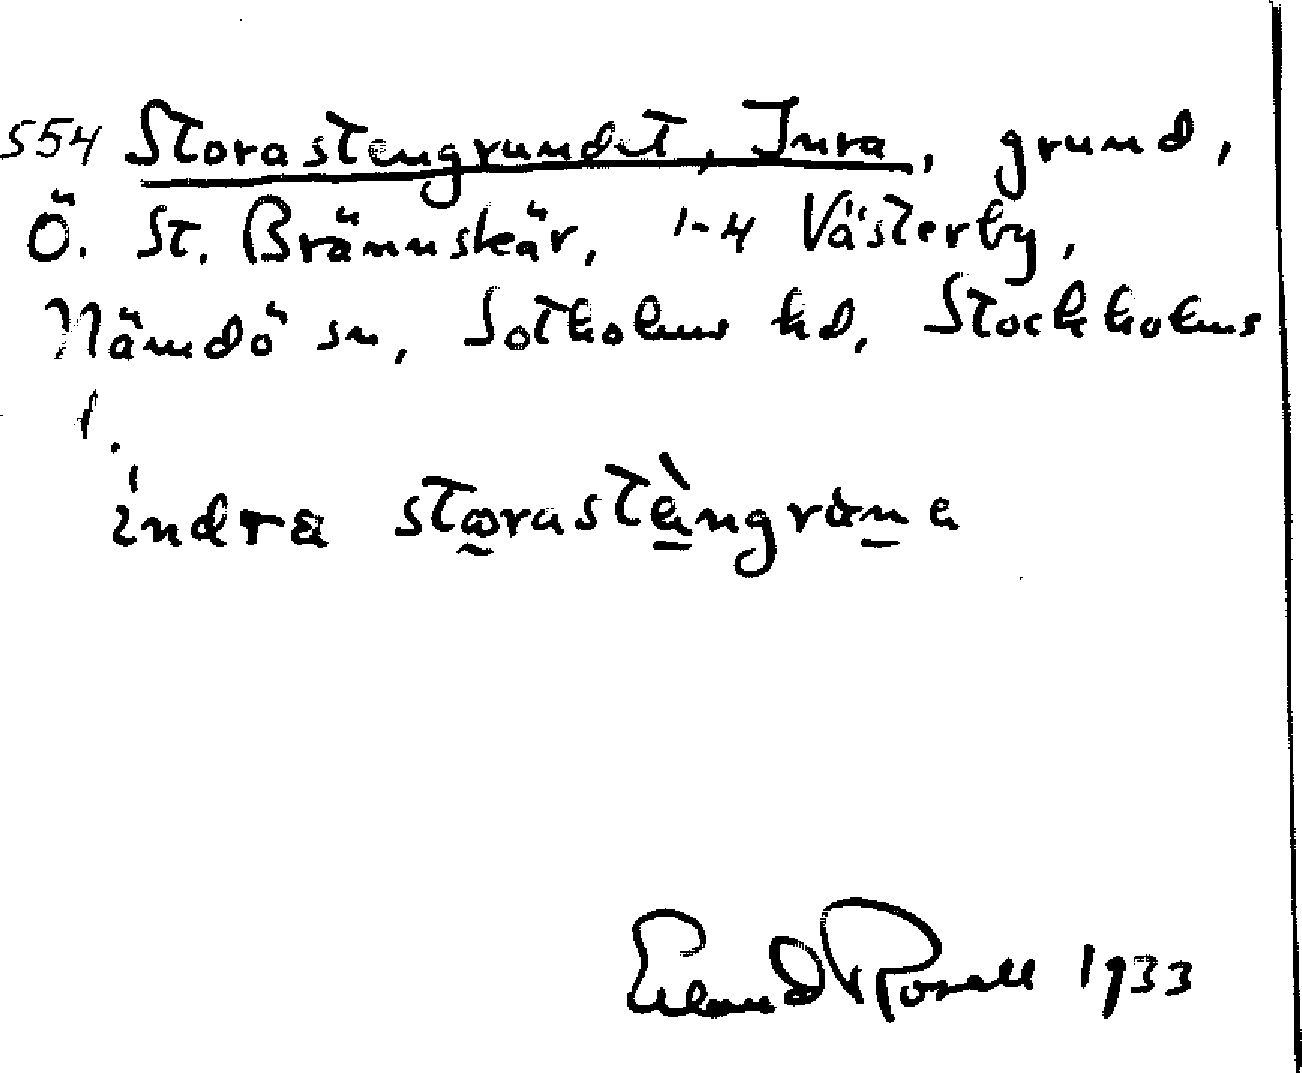 554 Storastengrundet, Inra, grund,
Ö. St. Brännskär, 1-4 Västerby,
Nämdö sn, Sotholms hd, Stockholms
l.
indra storastèngrùne
Erland Rosell 1933